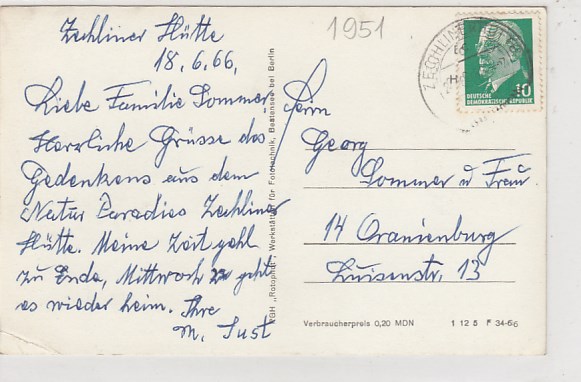 Zechliner Hütte
18.6.66,
Liebe Familie Sommer,
Herzliche Grüsse des
Gedenkens aus dem
Natur Paradies Zechliner
Hütte. Meine Zeit geht
zu Ende, Mittwoch geht
es wieder heim. Ihre
M. Just
PGH „Rotophot", Werkstätten für Fototechnik, Bestensee bei Berlin
1951
ZECHLINERHÜTTE
10
DEUTSCHE
DEMOKRATISCHE REPUBLIK
Herrn
Georg
Sommer u Frau
14 Oranienburg
Luisenstr. 13
Verbraucherpreis 0,20 MDN
1 12 5 F 34-66